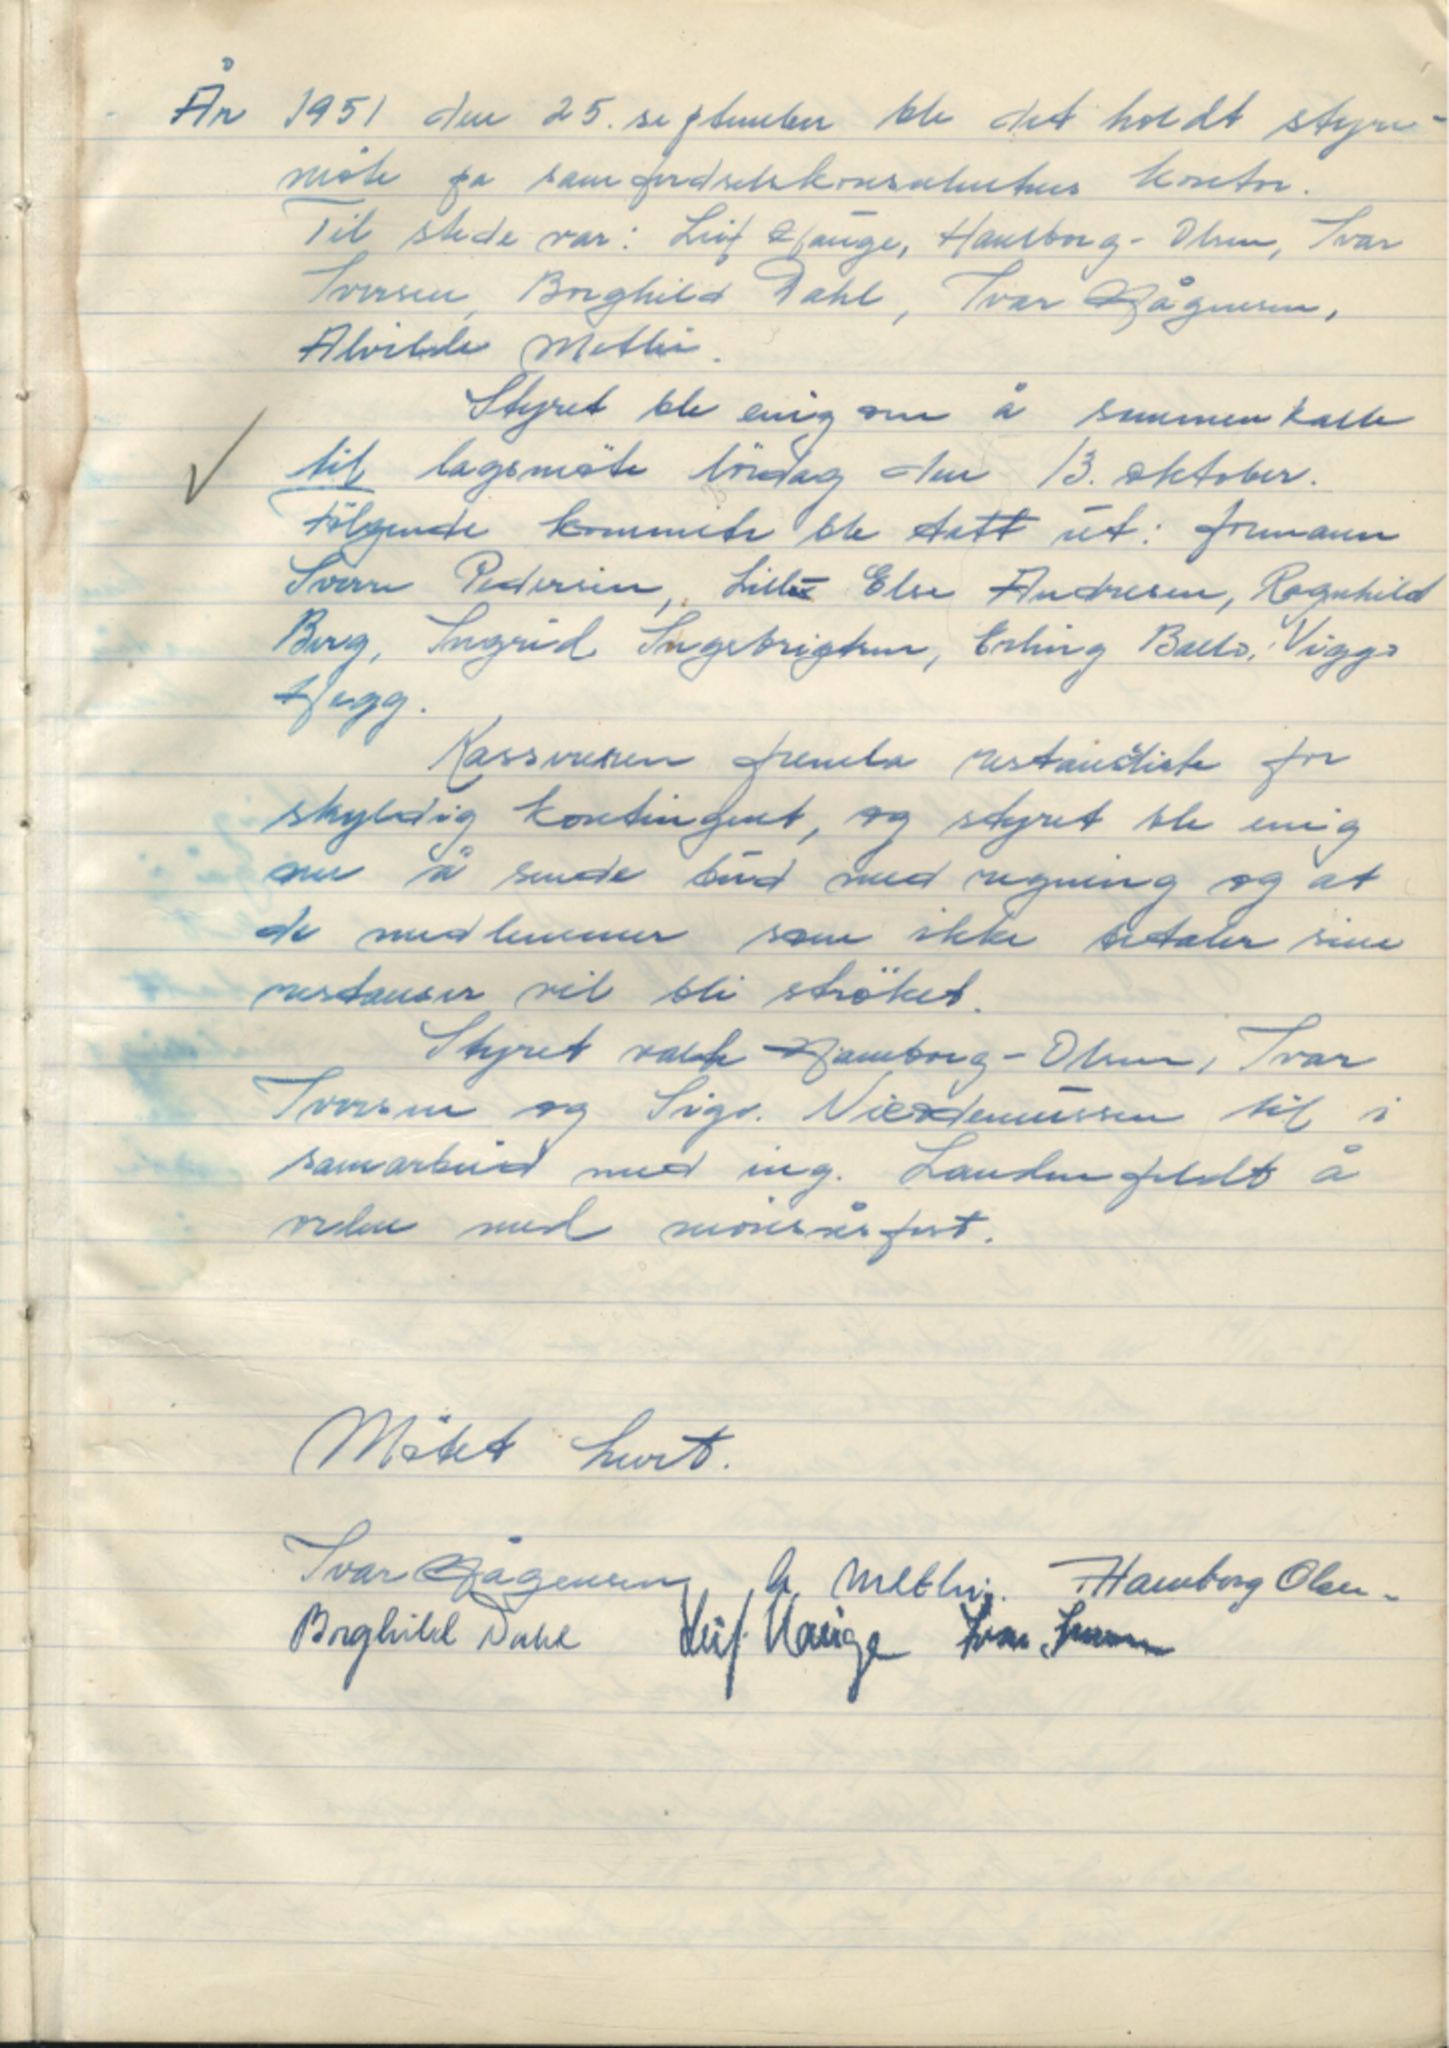 År 1951 den 25. september ble det holdt styre-
möte på samferdselskonsulentens kontor.
Til stede var: Leif Hauge, Hamborg-Olsen, Ivar
Iversen, Borghild Dahl, Ivar Hågensen,
Alvilde Methi.
Styret ble enig om å sammenkalle
til lagsmöte lördag den 13. oktober.
Fölgende kommite ble tatt ut: formann
Sverre Pedersen, Else Andresen, Ragnhild
Berg, Ingrid Ingebrigtsen, Erling Ballo, Viggo
Hegg.
Kassereren fremla restanseliste for
skyldig kontingent, og styret ble enig
om å sende bud med regning og at
de medlemmer som ikke betaler sine
restanser vil bli ströket.
Styret valgte Hamborg-Olsen, Ivar
Iversen og Sigv. Nicodemussen til i
samarbeid med ing. å
ordne med moroårsfest.
Mötet hevet.
Ivar Hågensen A. Methi. Hamborg Olsen-
Borghild Dahl Leif Hauge Ivar Iversen